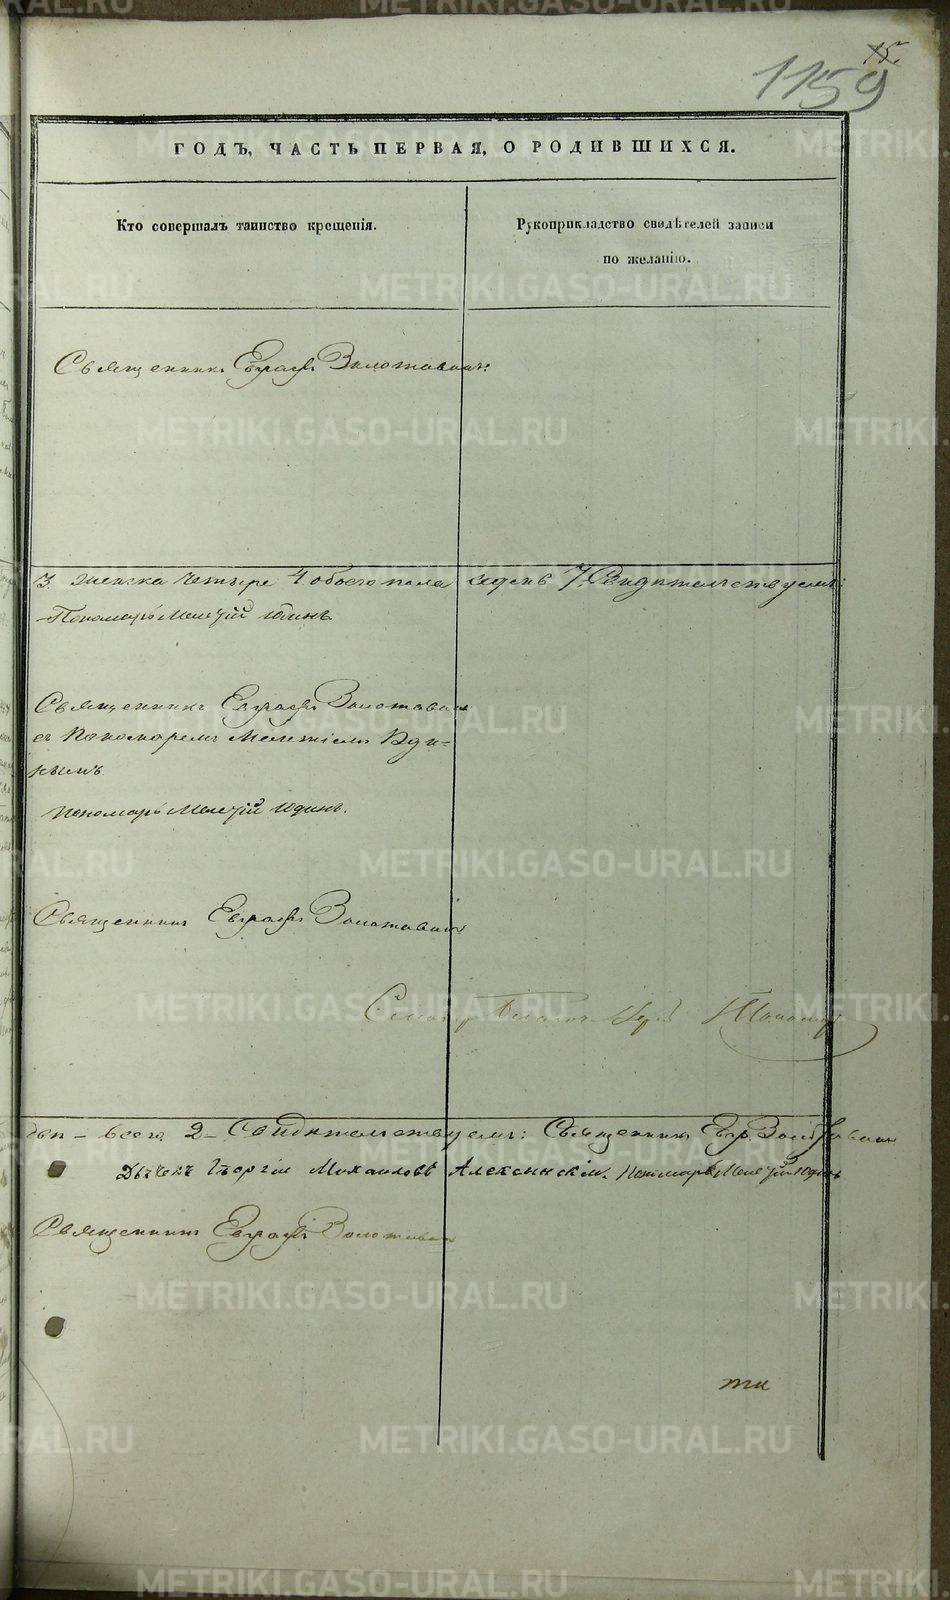 15.
1159
ГОДЪ, ЧАСТЬ ПЕРВАЯ, О РОДИВШИХСЯ.
Кто совершалъ таинство крещенія.
Рукоприкладство свидѣтелей записи
по желанію.
Священникъ Евграфъ Золотавинъ
3. женска четыре 4 обоего пола седмь 7. Свидѣтельствуемъ:
Пономарь Мелетій Юдинъ.
Священникъ Евграфъ Золотавинъ
съ Пономаремъ Мелетіемъ Юди-
нымъ
Пономарь Мелетій Юдинъ.
Священникъ Евграфъ Золотавинъ
всего 2 - Свидѣтельствуемъ: Священникъ Евгр. Золотавинъ
Дьячекъ Георгій Михаиловъ Алексинскій. Пономарь Мелетій Юдинъ
Священникъ Евграфъ Золотавинъ
METRIKI.GASO-URAL.RU